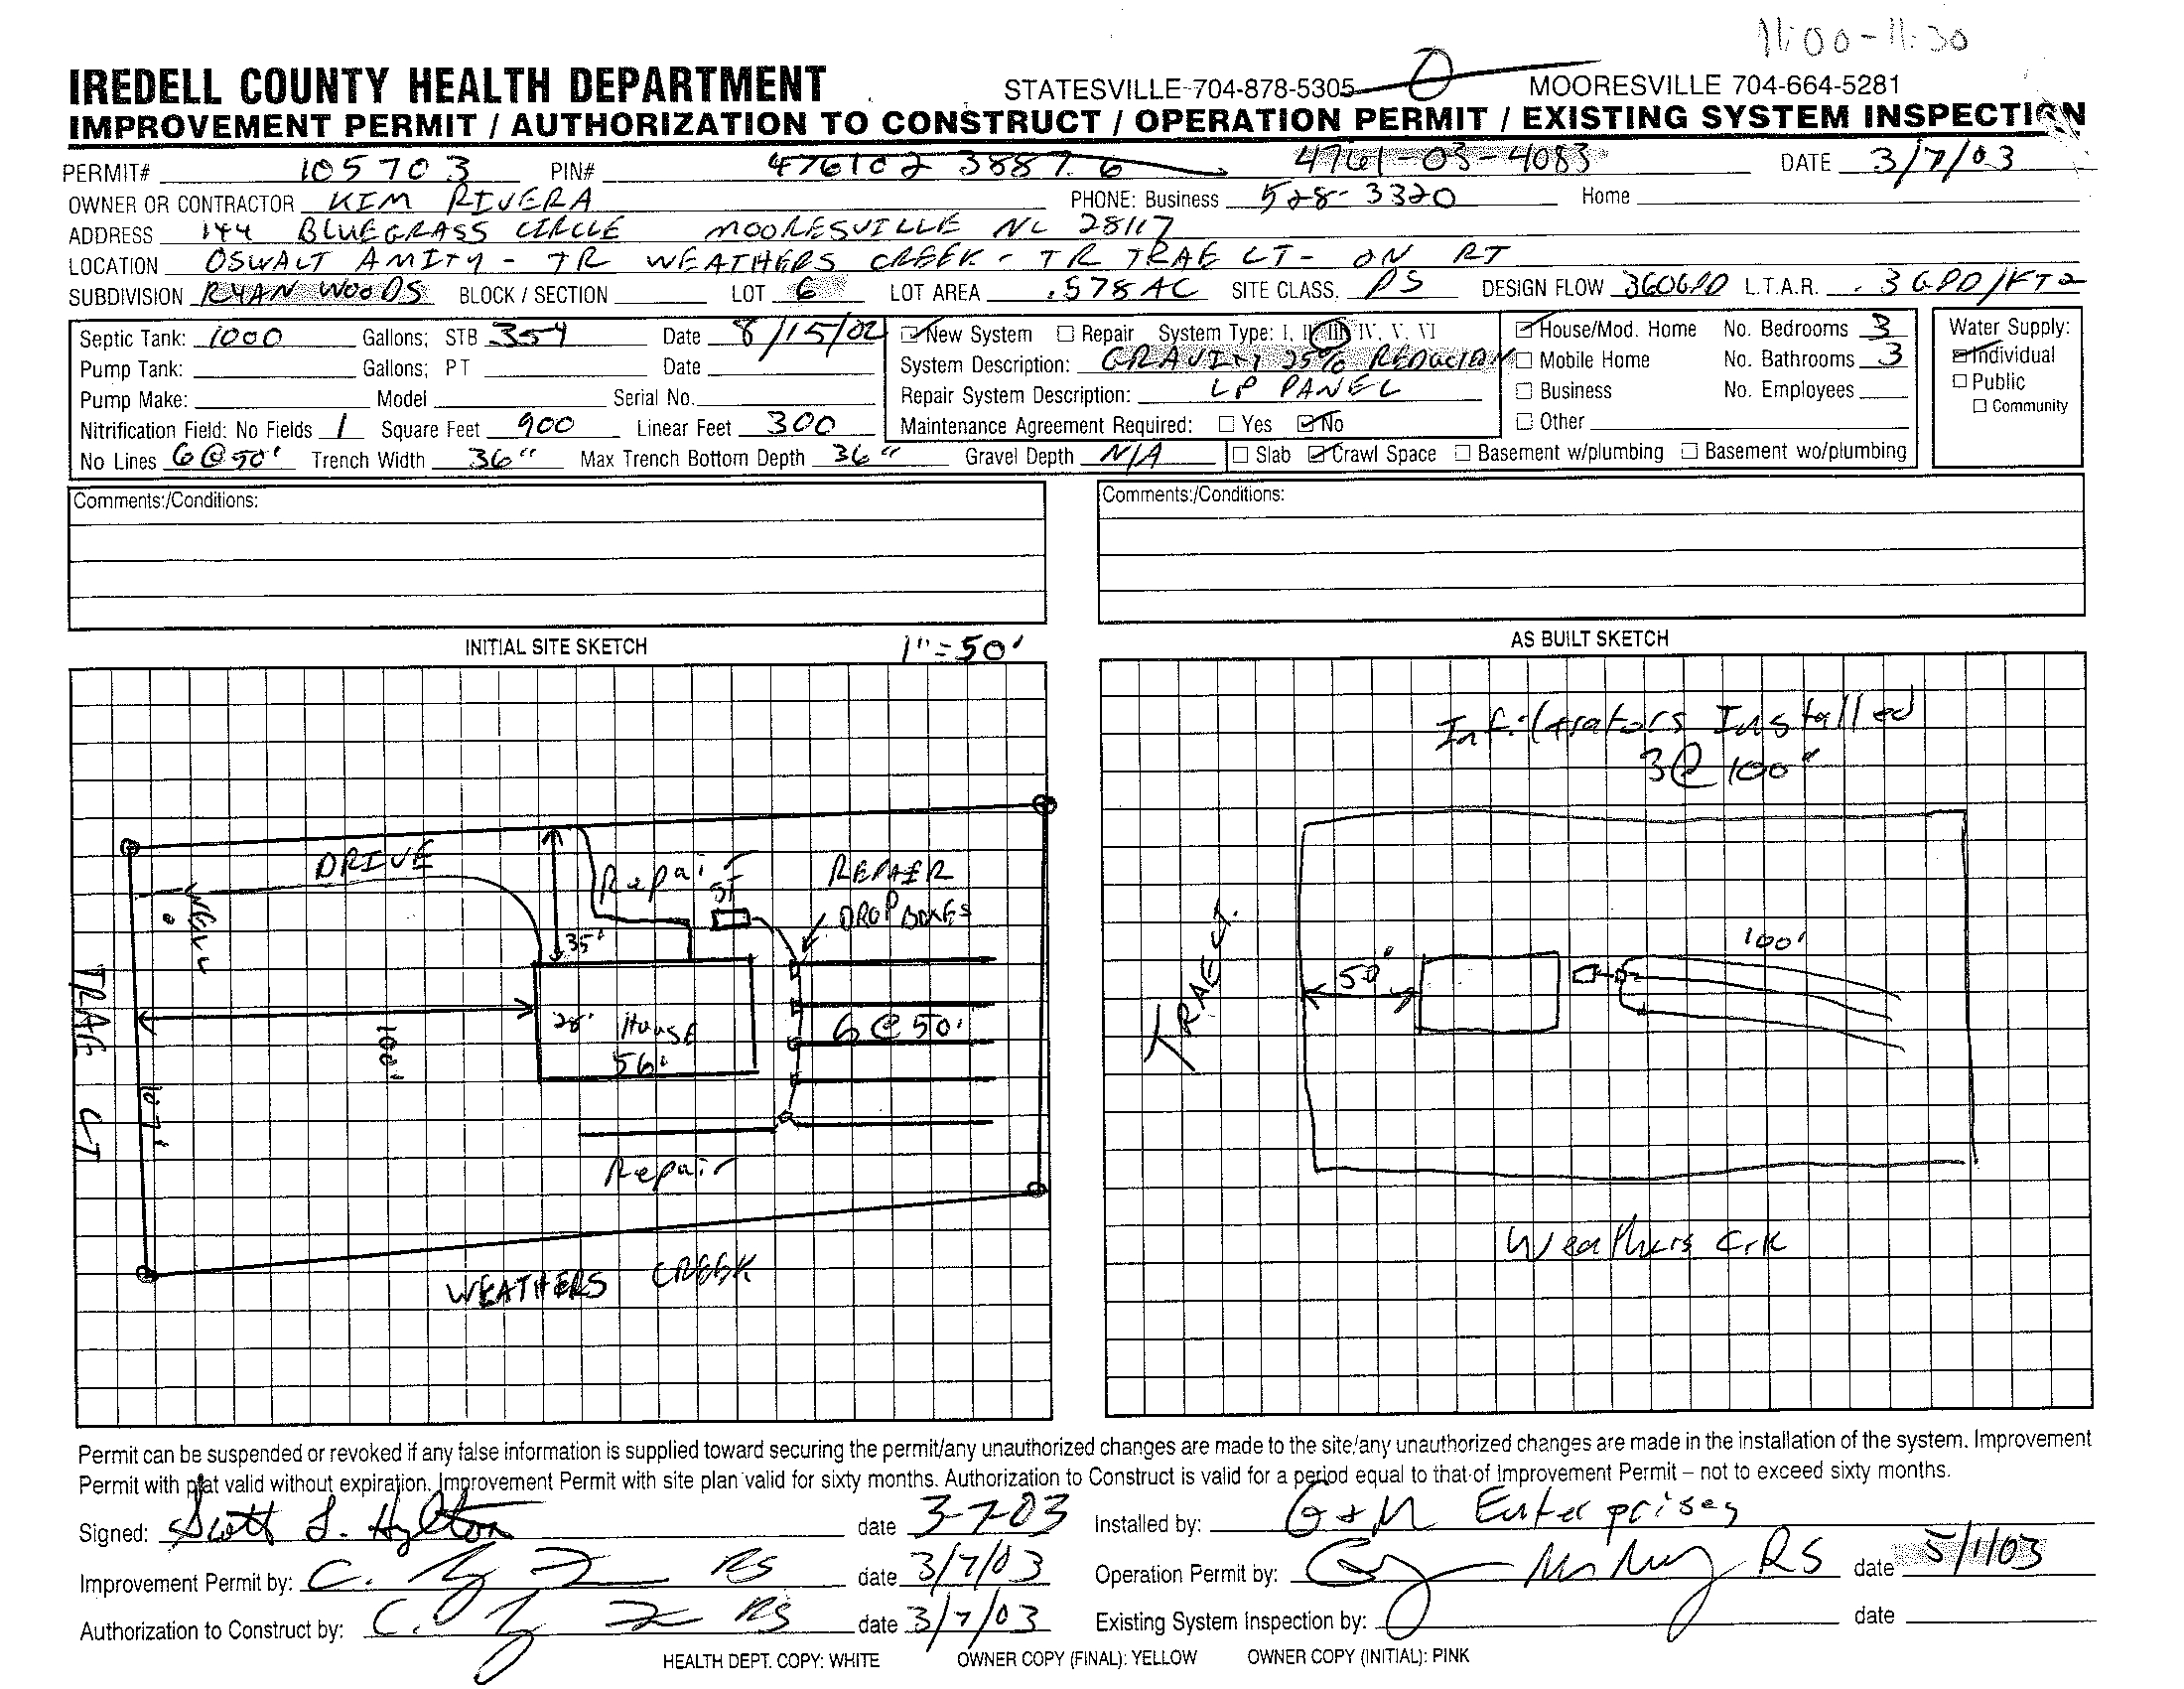 11:00-11:30
IREDELL COUNTY HEALTH DEPARTMENT STATESVILLE 704-878-5305 MOORESVILLE 704-664-5281
IMPROVEMENT PERMIT / AUTHORIZATION TO CONSTRUCT / OPERATION PERMIT / EXISTING SYSTEM INSPECTION
PERMIT# 105703 PIN# 476102 3887 6 4761-03-4083 DATE 3/7/03
OWNER OR CONTRACTOR KIM RIVERA PHONE: Business 528-3320 Home
ADDRESS 144 BLUEGRASS CIRCLE MOORESVILLE NC 28117
LOCATION OSWALT AMITY - TR WEATHERS CREEK - TR TRAE CT - ON RT
SUBDIVISION RYAN WOODS BLOCK / SECTION LOT 6 LOT AREA .578 AC SITE CLASS. PS DESIGN FLOW 360GPD L.T.A.R. .3 GPD/FT2
Septic Tank: 1000 Gallons; STB 354 Date 8/15/02 New System Repair System Type: I, II, III, IV, V, VI House/Mod. Home No. Bedrooms 3 Water Supply:
Pump Tank: Gallons; PT Date System Description: GRAVITY 25% REDUCTION Mobile Home No. Bathrooms 3 Individual
Pump Make: Model Serial No. Repair System Description: LP PANEL Business No. Employees Public
Nitrification Field: No Fields 1 Square Feet 900 Linear Feet 300 Maintenance Agreement Required: Yes No Other Community
No Lines 6 @ 50' Trench Width 36" Max Trench Bottom Depth 36" Gravel Depth N/A Slab Crawl Space Basement w/plumbing Basement wo/plumbing
Comments:/Conditions: Comments:/Conditions:
INITIAL SITE SKETCH 1"=50' AS BUILT SKETCH
Infiltrators Installed
3@ 100'
DRIVE
WELL
Repair
ST
REPAIR
DROP BOXES
35'
TRAE CT
100'
107'
28' House
56'
6 @ 50'
Repair
WEATHERS CREEK
TRAE CT.
50'
100'
Weathers Crk
Permit can be suspended or revoked if any false information is supplied toward securing the permit/any unauthorized changes are made to the site/any unauthorized changes are made in the installation of the system. Improvement
Permit with plat valid without expiration. Improvement Permit with site plan valid for sixty months. Authorization to Construct is valid for a period equal to that of Improvement Permit – not to exceed sixty months.
Signed: Scott L. Hylton date 3-7-03 Installed by: G+M Enterprises
Improvement Permit by: C. RS date 3/7/03 Operation Permit by: RS date 5/1/03
Authorization to Construct by: C. RS date 3/7/03 Existing System Inspection by: date
HEALTH DEPT. COPY: WHITE OWNER COPY (FINAL): YELLOW OWNER COPY (INITIAL): PINK